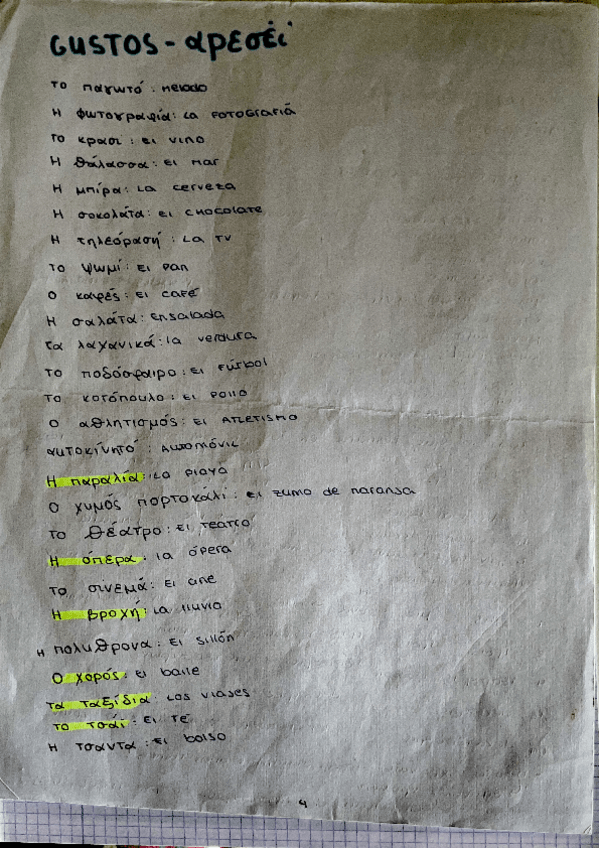 GUSTOS - αρεσέι
το παγωτό : Helado
Η φωτογραφία: LA FOTOGRAFIÁ
Το κρασί : El vino
Η θάλασσα: El mar
Η μπίρα: La cerveza
Η σοκολάτα: El CHOCOLATE
Η τηλεόραση : LA TV
Το ψωμί : El pan
Ο καφές: El café
Η σαλάτα: Ensalada
Τα λαχανικά: la verdura
Το ποδόσφαιρο : El fútbol
Το κοτόπουλο : El pollo
Ο αθλητισμός: El ATLETISMO
αυτοκίνητό : AUTOMÓVIL
Η παραλία: LA playa
Ο χυμός πορτοκάλι : El zumo de naranja
Το θέατρο: El teatro
Η όπερα : la ópera
Το σινεμά: El cine
Η βροχή: La lluvia
Η πολυθρονα: El sillón
Ο χορός: El baile
τα ταξίδια: Los viajes
το τσάι : El té
Η τσαντα : El bolso
4